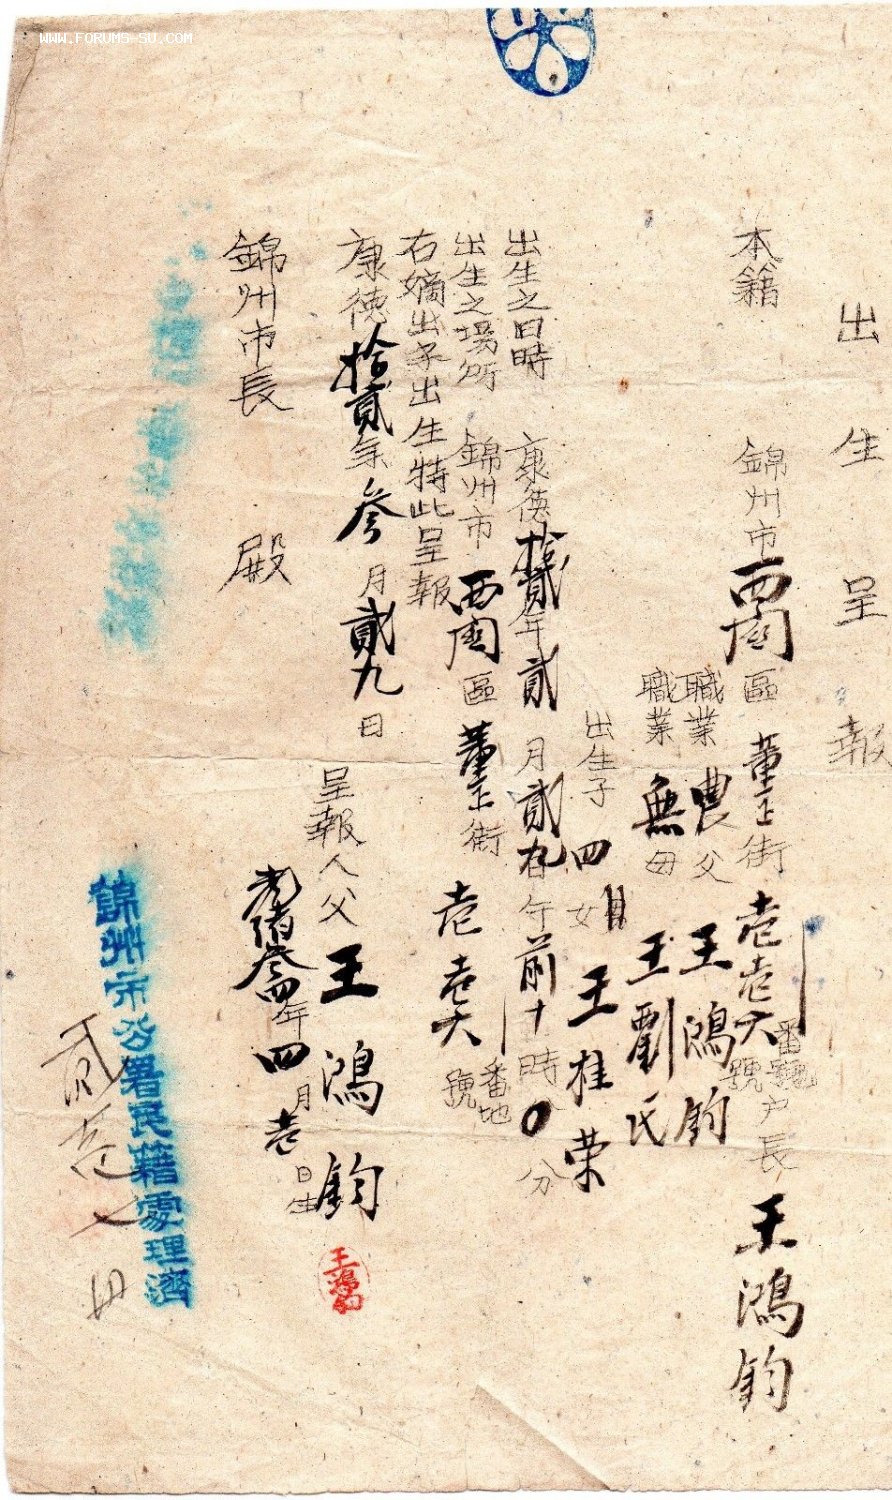 WWW.FORUMS-SU.COM
出生呈報
本籍 錦州市西関區董正街壱壱六號 戸長 王鴻鈞
番號
職業 農 父 王鴻鈞
職業 無 母 王劉氏
出生子 四女 王桂荣
出生之日時 康德拾貳年貳月貳九日午前十時0分
出生之場所 錦州市西関區董正街壱壱六號
番地
右嫡出子出生特此呈報
康德拾貳年叁月貳九日
呈報人父 王鴻鈞
王鴻鈞
光緒叁四年四月壱日生
錦州市長 殿
錦州市公署民籍處理濟